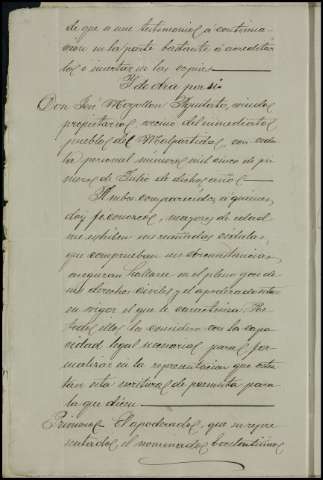 de que a une testimonio, a continua-
cion en la parte bastante a acredita-
los e insertar en las copias
Y de otra por si
Don José Mogollon Ajustado, viudo,
propietario, vecino del inmediato
pueblo de Malpartida, con cedu-
la personal numero mil cinco de pri-
mero de Julio de dicho año
Ambos comparecidos, a quienes
doy fe conozco, mayores de edad
me exhiben sus reseñadas cedulas,
que comprueban su circunstancia
aseguran hallarse en el pleno goce de
sus derechos civiles y el apoderado esta
en vigor el que le caracteriza. Por
todo ellos los considero con la capa-
cidad legal necesaria para for-
malizar en la representacion que osten-
tan esta escritura de permuta para
la que dicen
Primero El apoderado, que su repre-
sentado el nombrado